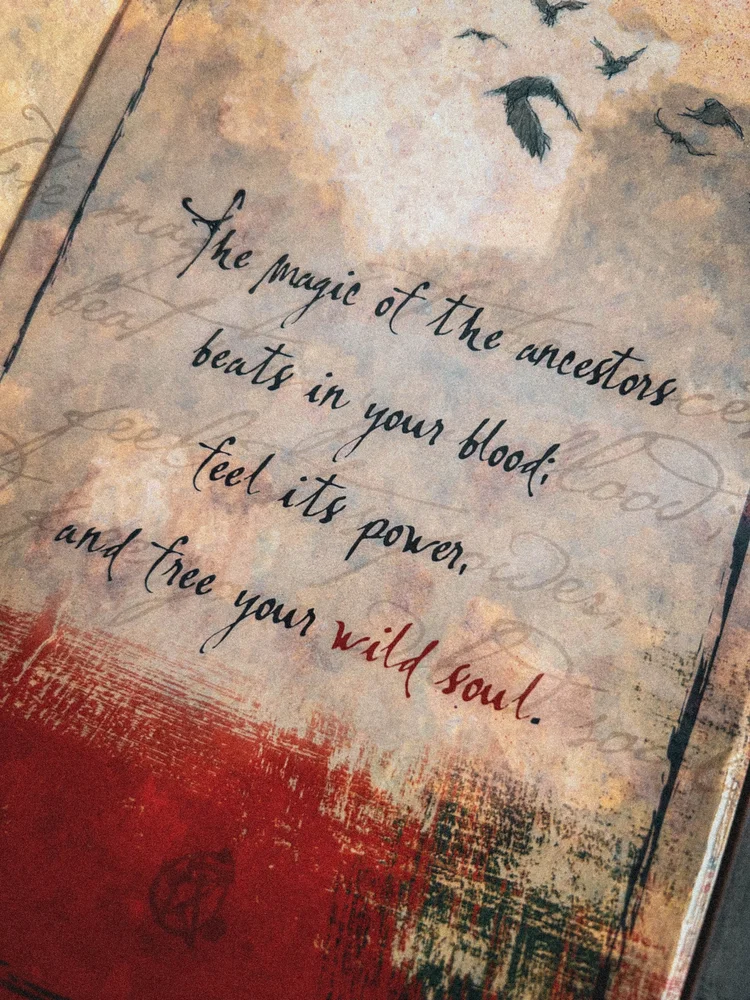 The magic of the ancestors
beats in your blood;
feel its power,
and free your wild soul.